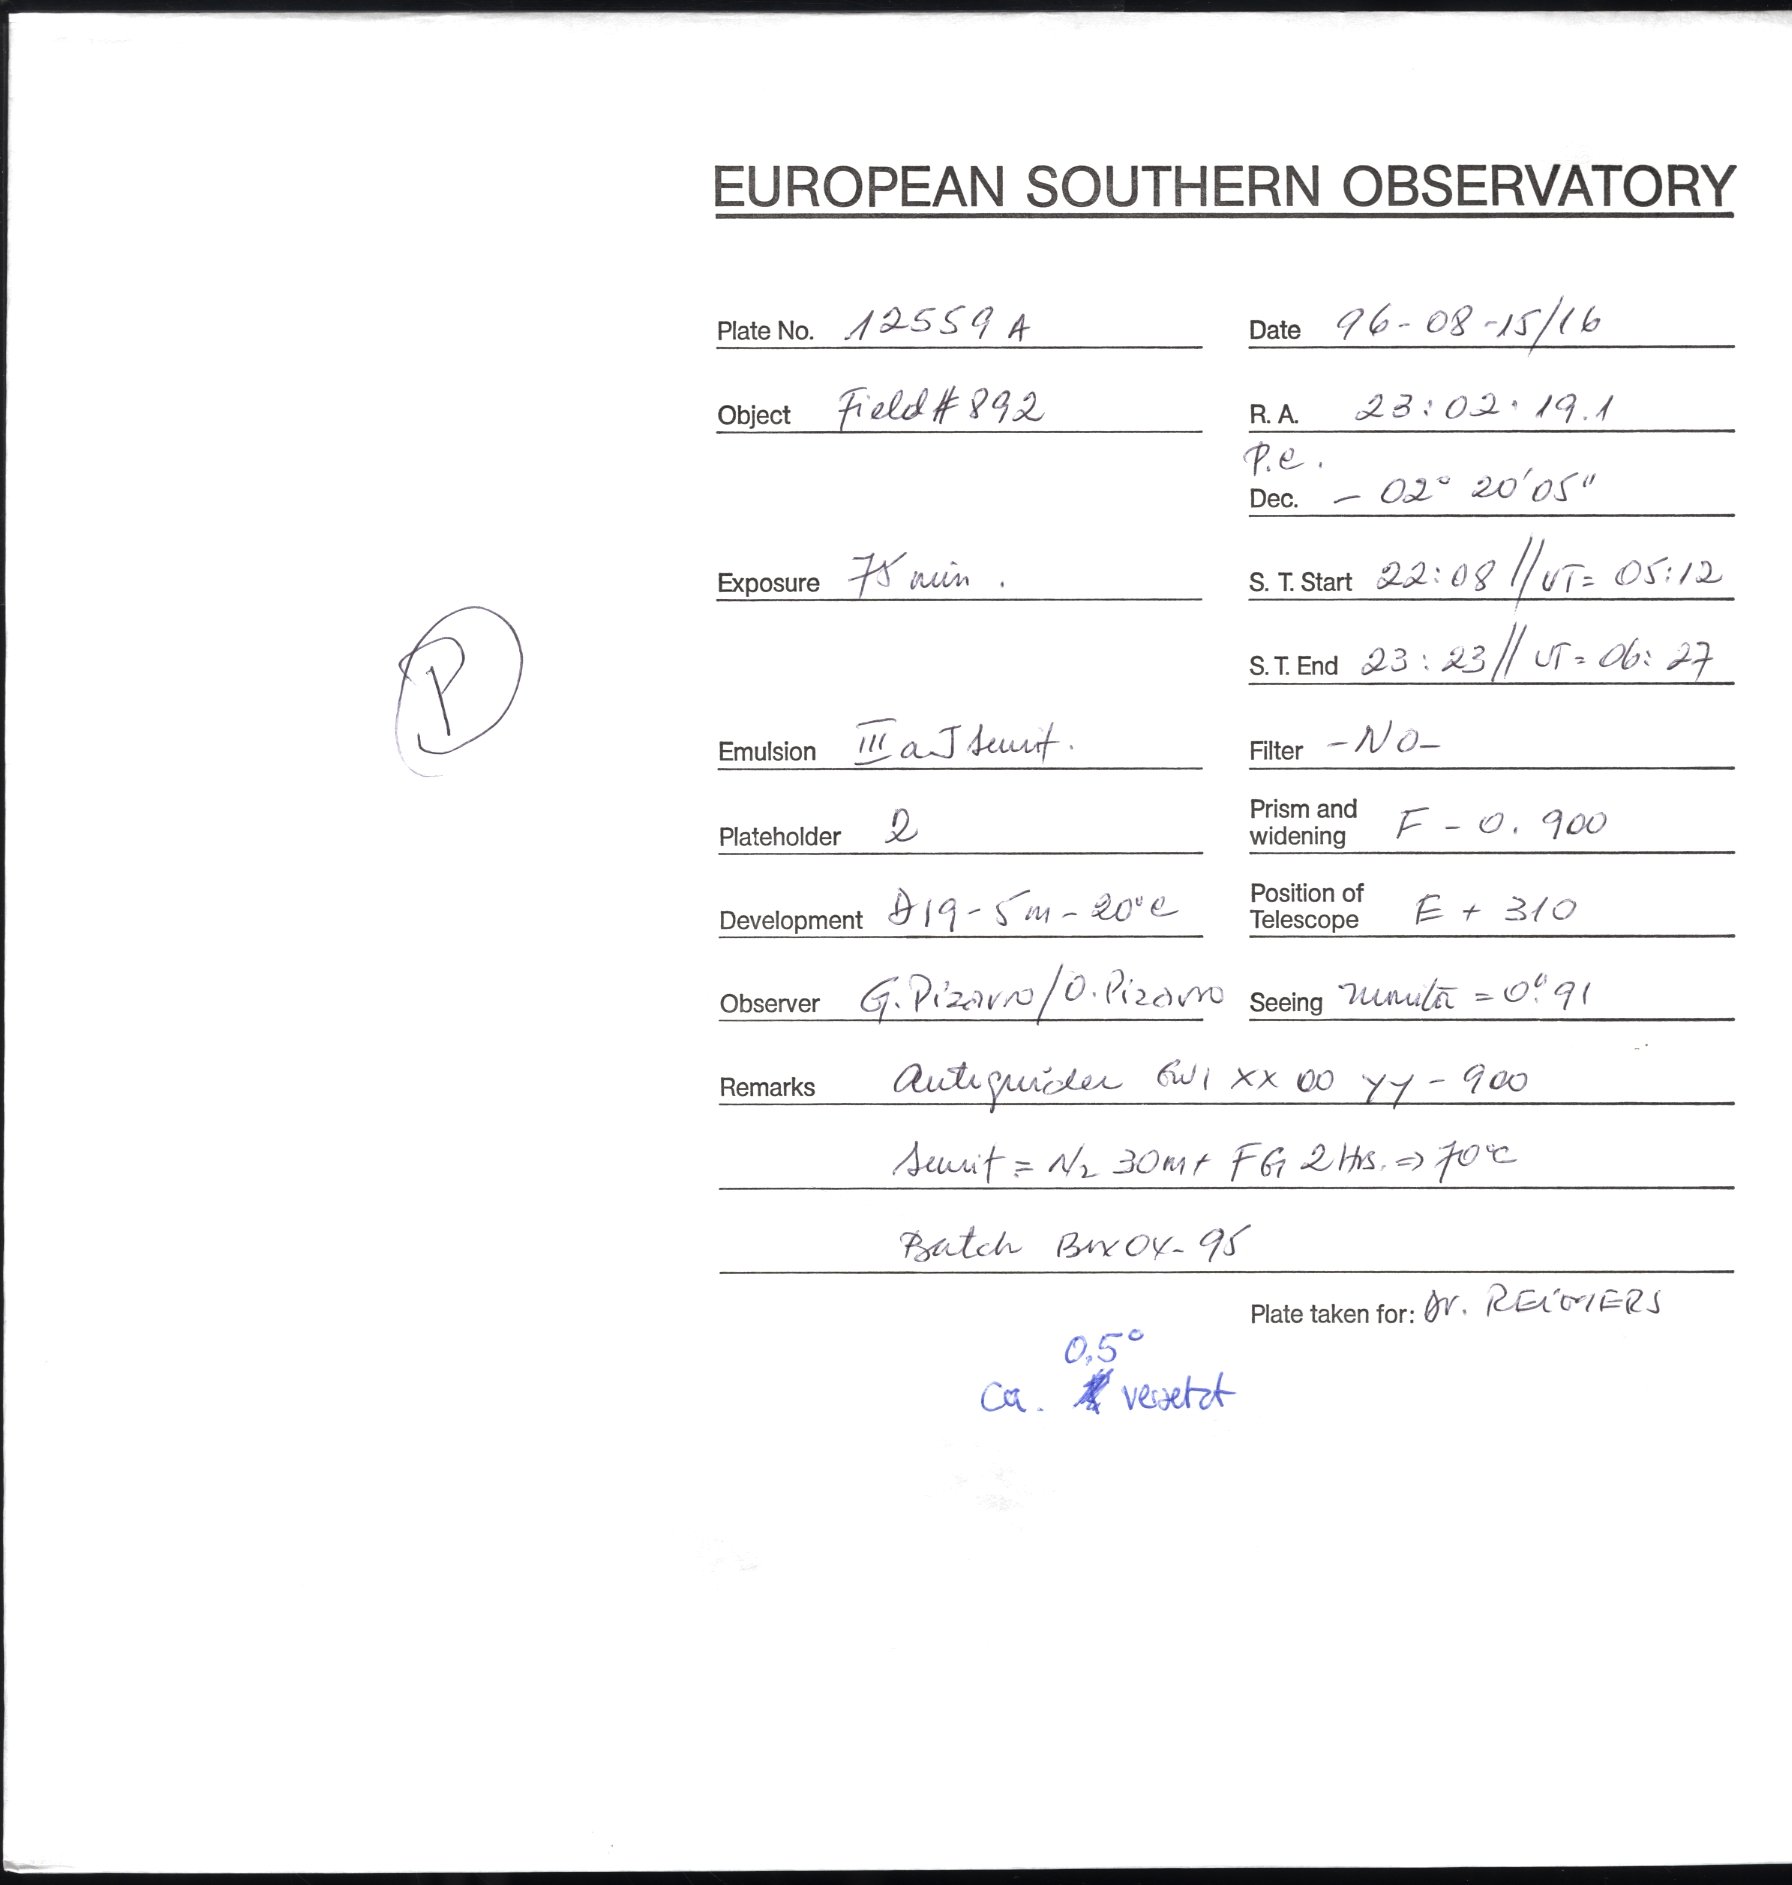 EUROPEAN SOUTHERN OBSERVATORY
Plate No. 12559 A Date 96-08-15/16
Object Field # 892 R. A. 23:02:19.1
P.e.
Dec. - 02° 20' 05"
Exposure 75 min. S. T. Start 22:08 // UT= 05:12
P
S. T. End 23:23 // UT= 06:27
Emulsion III a J sensit. Filter -No-
Plateholder 2 Prism and widening F - 0.900
Development D19-5m-20°C Position of Telescope E + 310
Observer G. Pizarro/O. Pizarro Seeing = 0".91
Remarks XX 00 YY - 900
Sensit = N2 30m+ FG 2 Hrs. => 70°C
Batch 04-95
Plate taken for: Dr. REIMERS
0,5°
Ca. versetzt